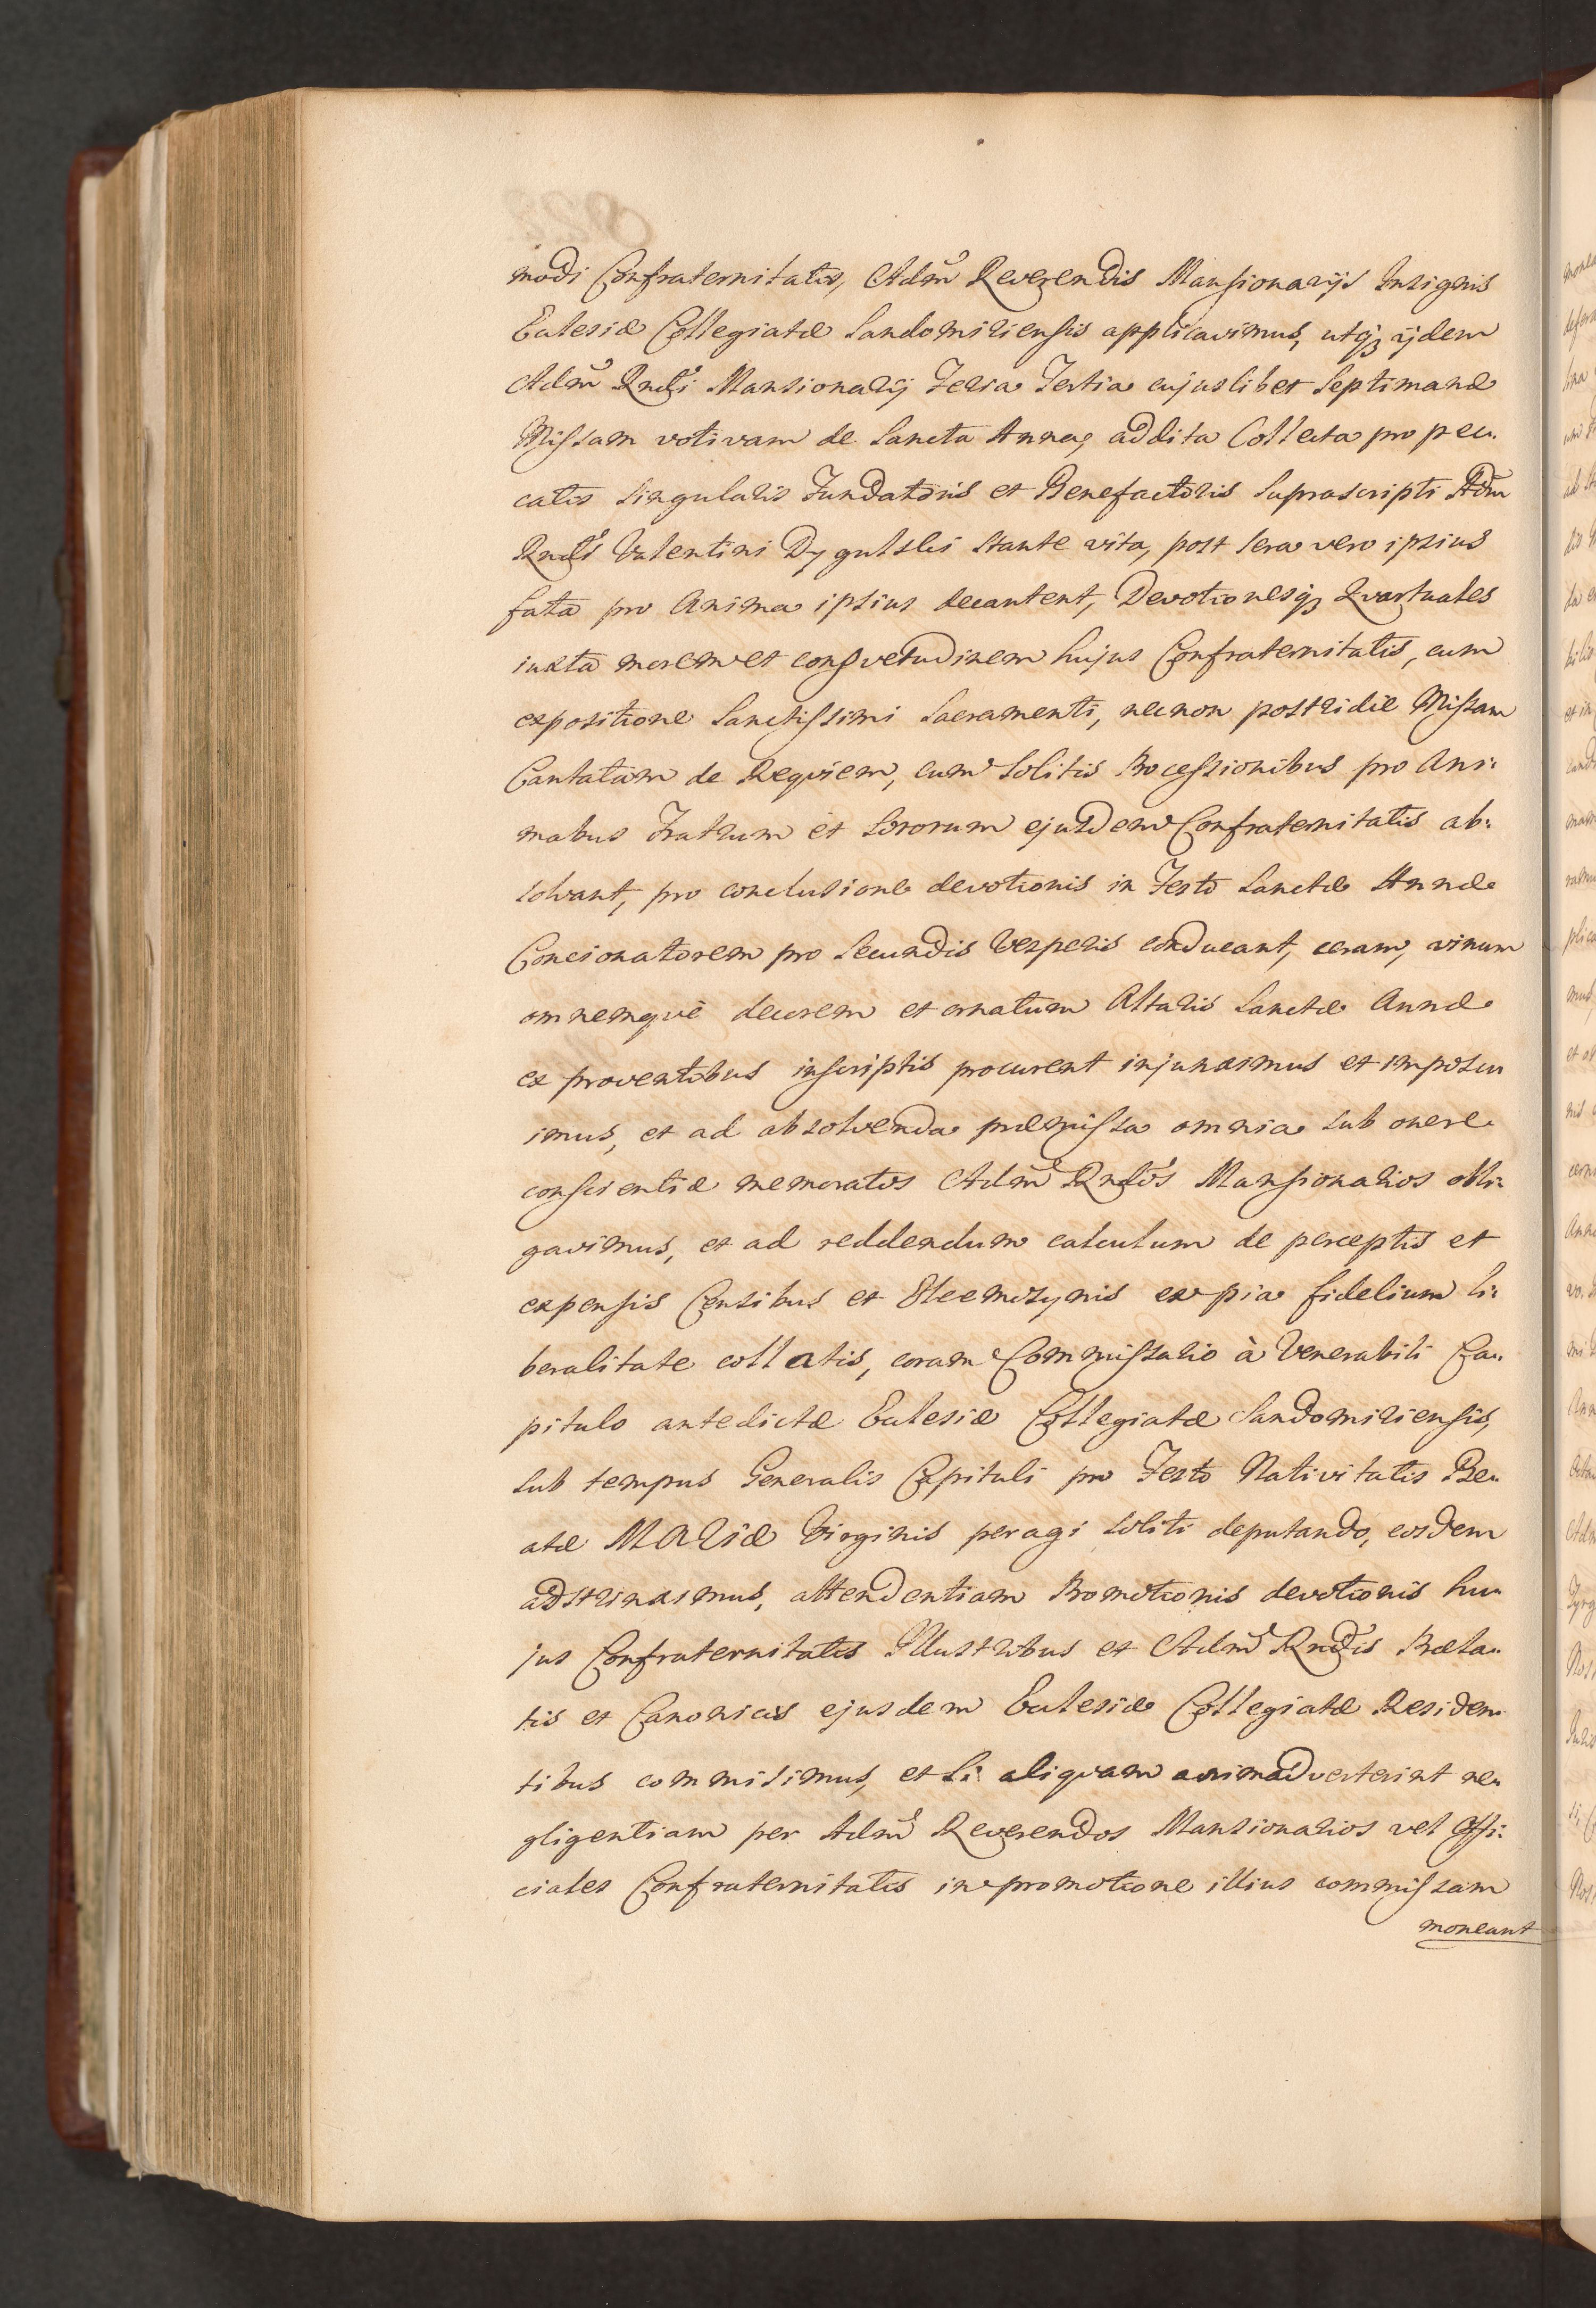 modi Confraternitatis, Adm̃ Reverendis Mansionarijs Insignis
Ecclesiæ Collegiatæ Sandomiriensis applicavimus, utq; ijdem
Adm̃ Rndi Mansionarij Feria Tertia cujuslibet Septimanæ
Missam votivam de Sancta Anna, addita Collecta pro pec:
catis singularis Fundatoris et Benefactoris suprascripti Adm̃
Rndi Valentini Dygulski stante vita, post sera vero ipsius
fata pro Anima ipsius decantent, Devotionesq; Quartuales
iuxta morem et consvetudinem hujus Confraternitatis, cum
expositione Sanctissimi Sacramenti, necnon postridie Missam
Cantatam de Reqviem, cum solitis Processionibus pro Ani:
mabus Fratrum et Sororum ejusdem Confraternitatis ab:
solvant, pro conclusione devotionis in Festo Sanctæ Annæ
Concionatorem pro Secundis Vesperis conducant, ceram, vinum
omnemqvè decorem et ornatum Altaris Sanctæ Annæ
ex proventibus inscriptis procurent injunximus et imposu
imus, et ad absolvenda præmissa omnia sub onere
conscientiæ memoratos Adm̃ Rndos Mansionarios obli:
gavimus, et ad reddendum calculum de perceptis et
expensis Censibus et Eleemosynis ex pia fidelium li:
beralitate collatis, coram Commissario à Venerabili Ca:
pitulo antedictæ Ecclesiæ Collegiatæ Sandomiriensis,
sub tempus Generalis Capituli pro Festo Nativitatis Be:
atæ MARIÆ Virginis peragi soliti deputando, eosdem
adstrinximus, attendentiam Promotionis devotionis hu:
jus Confraternitatis Illustribus et Adm̃ Rndis Præla:
tis et Canonicis ejusdem Ecclesiæ Collegiatæ Residen:
tibus commisimus, et si aliqvam animadverterint ne:
gligentiam per Adm̃ Reverendos Mansionarios vel Offi:
ciales Confraternitatis in promotione illius commissam
moneant